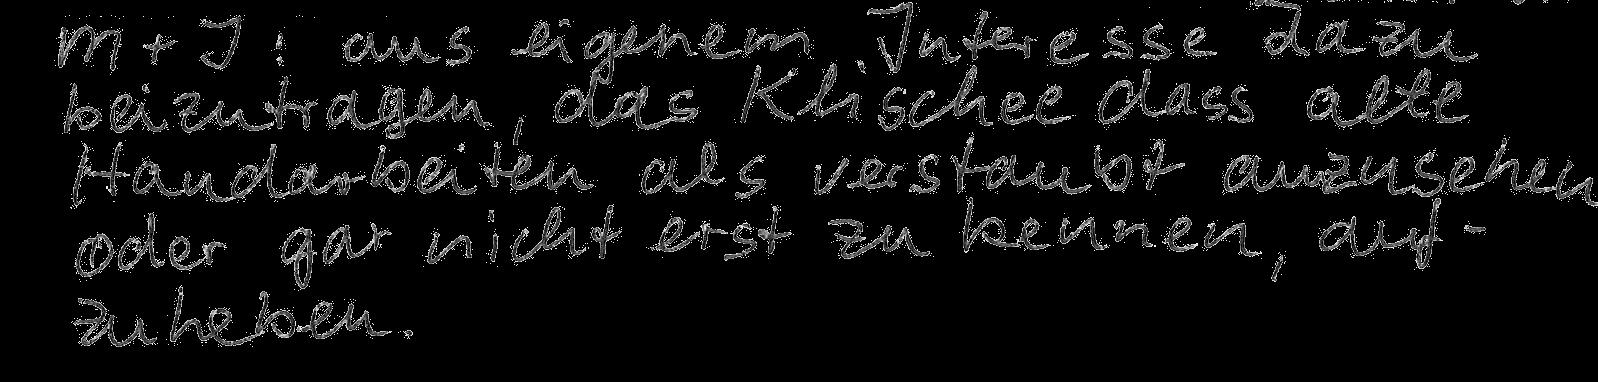 M + J : aus eigenem Interesse dazu
beizutragen, das Klischee dass alte
Handarbeiten als verstaubt anzusehen
oder gar nicht erst zu kennen, auf-
zuheben.